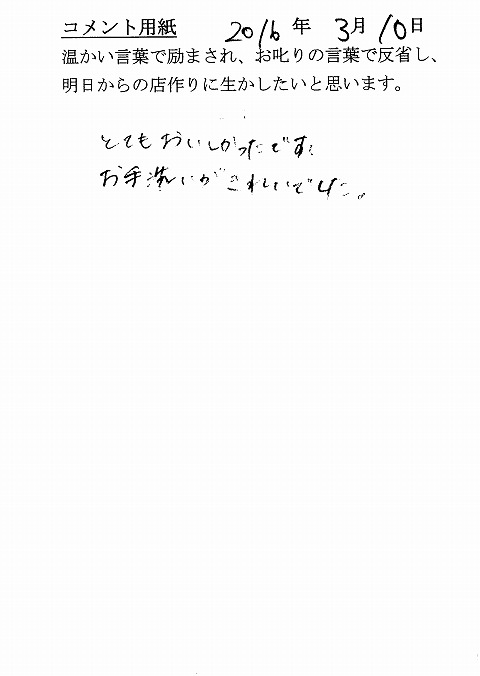 コメント用紙 2016年 3月10日
温かい言葉で励まされ、お叱りの言葉で反省し、
明日からの店作りに生かしたいと思います。
とてもおいしかったです。
お手洗いがきれいでした。